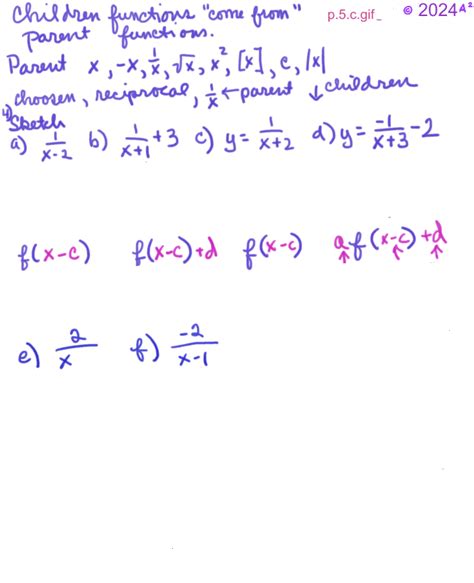 Children functions "come from" p.5.c.gif_ © 2024A²
parent functions.
Parent x, -x, 1/x, √x, x², [x], c, |x|
choosen, reciprocal, 1/x ← parent ↓ children
4) Sketch
a) 1/(x-2) b) 1/(x+1) + 3 c) y = 1/(x+2) d) y = -1/(x+3) - 2
f(x-c) f(x-c)+d f(x-c) a f(x-c)+d
e) 2/x f) -2/(x-1)